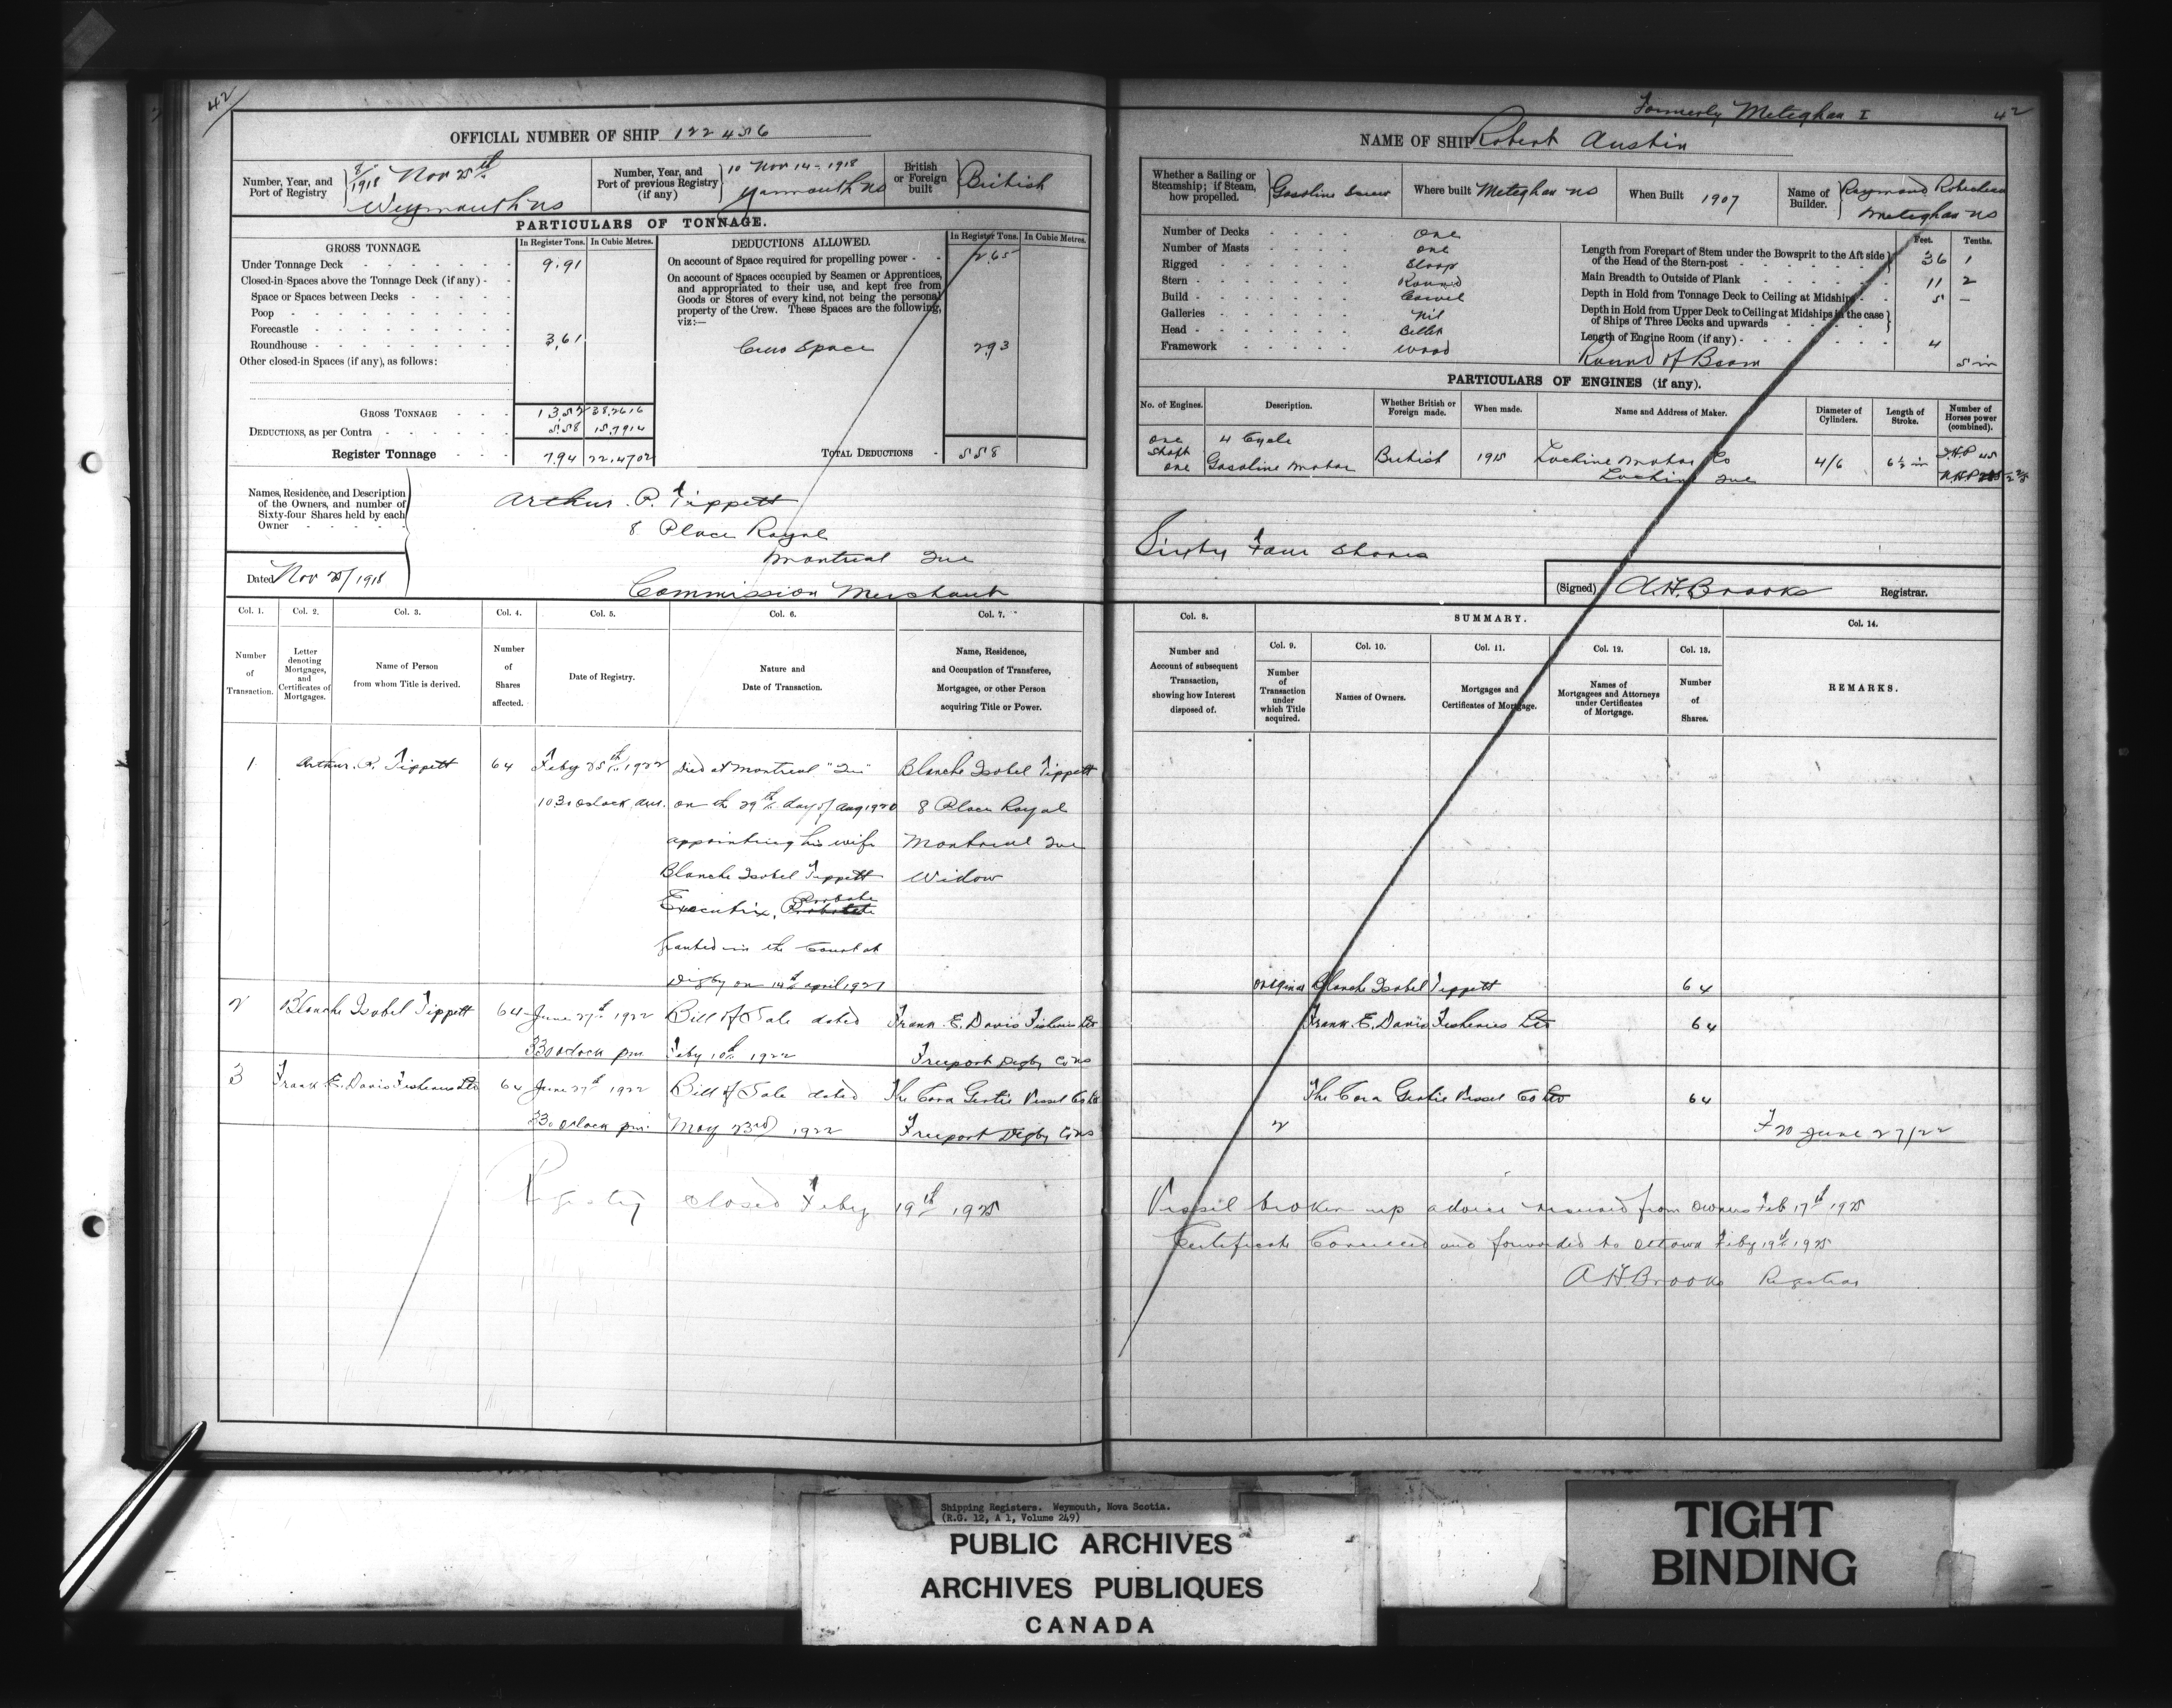 42
OFFICIAL NUMBER OF SHIP 122456
Number, Year, and Port of Registry
8/1918 Nov 25th
Weymouth NS
Number, Year, and Port of previous Registry (if any)
10 Nov 14-1918
Yarmouth NS
British or Foreign built
British
PARTICULARS OF TONNAGE.
GROSS TONNAGE. In Register Tons. In Cubic Metres.
Under Tonnage Deck 9.91
Closed-in Spaces above the Tonnage Deck (if any)
Space or Spaces between Decks
Poop
Forecastle
Roundhouse 3,61
Other closed-in Spaces (if any), as follows:
GROSS TONNAGE 13,52 38.2616
DEDUCTIONS, as per Contra 5.58 15.7914
Register Tonnage 7.94 22.4702
DEDUCTIONS ALLOWED. In Register Tons. In Cubic Metres.
On account of Space required for propelling power 2.65
On account of Spaces occupied by Seamen or Apprentices,
and appropriated to their use, and kept free from
Goods or Stores of every kind, not being the personal
property of the Crew. These Spaces are the following,
viz:—
Crew Space 293
TOTAL DEDUCTIONS 558
Names, Residence, and Description
of the Owners, and number of
Sixty-four Shares held by each
Owner
Arthur. P. Tippett
8 Place Royal
Montreal Que
Commission Merchant
Dated Nov 25/1918
Col. 1. Col. 2. Col. 3. Col. 4. Col. 5. Col. 6. Col. 7.
Number of Transaction.
Letter denoting Mortgages, and Certificates of Mortgages.
Name of Person from whom Title is derived.
Number of Shares affected.
Date of Registry.
Nature and Date of Transaction.
Name, Residence, and Occupation of Transferee, Mortgagee, or other Person acquiring Title or Power.
1 Arthur. P. Tippett 64 Feby 25th 1922 Died at Montreal "Que" Blanche Isobel Tippett
1030 oclock am. on the 29th day of Aug 1920 8 Place Royal
appointing his wife Montreal Que
Blanche Isobel Tippett Widow
Executrix, Probate
Granted in the Court at
Digby on 14th April 1921
2 Blanche Isobel Tippett 64 June 27th 1922 Bill of Sale dated Frank. E. Davis Fisheries Ltd
330 oclock pm. Feby 10th 1922 Freeport Digby Co NS
3 Frank E. Davis Fisheries Ltd 64 June 27th 1922 Bill of Sale dated The Cora Gertie Vessel Co Ltd
330 oclock pm. May 23rd 1922 Freeport Digby Co NS
Registry closed Feby 19th 1925
Formerly Meteghan I
42
NAME OF SHIP Robert Austin
Whether a Sailing or Steamship; if Steam, how propelled.
Gasoline Screw
Where built Meteghan NS
When Built 1907
Name of Builder.
Raymond Robicheau
Meteghan NS
Number of Decks One
Number of Masts One
Rigged Sloop
Stern Round
Build Carvel
Galleries Nil
Head Billet
Framework Wood
Feet. Tenths.
Length from Forepart of Stem under the Bowsprit to the Aft side of the Head of the Stern-post 36 1
Main Breadth to Outside of Plank 11 2
Depth in Hold from Tonnage Deck to Ceiling at Midships 5 –
Depth in Hold from Upper Deck to Ceiling at Midships in the case of Ships of Three Decks and upwards
Length of Engine Room (if any) 4
Round of Beam 5 in
PARTICULARS OF ENGINES (if any).
No. of Engines. Description. Whether British or Foreign made. When made. Name and Address of Maker. Diameter of Cylinders. Length of Stroke. Number of Horses power (combined).
One 4 Cycle
Shaft One Gasoline Motor British 1915 Lachine Motor Co 4/6 6½ in I.H.P 45
Lachine Que
Sixty Four Shares
(Signed) A.H. Brooks Registrar.
Col. 8. SUMMARY. Col. 14.
Col. 9. Col. 10. Col. 11. Col. 12. Col. 13.
Number and Account of subsequent Transaction, showing how Interest disposed of.
Number of Transaction under which Title acquired.
Names of Owners.
Mortgages and Certificates of Mortgage.
Names of Mortgagees and Attorneys under Certificates of Mortgage.
Number of Shares.
REMARKS.
Original Blanche Isobel Tippett 64
Frank. E. Davis Fisheries Ltd 64
The Cora Gertie Vessel Co Ltd 64
2 F 20 June 27/22
Vessel broken up advice received from owners Feb 17th 1925
Certificate Cancelled and forwarded to Ottawa Feby 19th 1925
A H Brooks Registrar
Shipping Registers. Weymouth, Nova Scotia.
(R.G. 12, A 1, Volume 249)
PUBLIC ARCHIVES
ARCHIVES PUBLIQUES
CANADA
TIGHT
BINDING